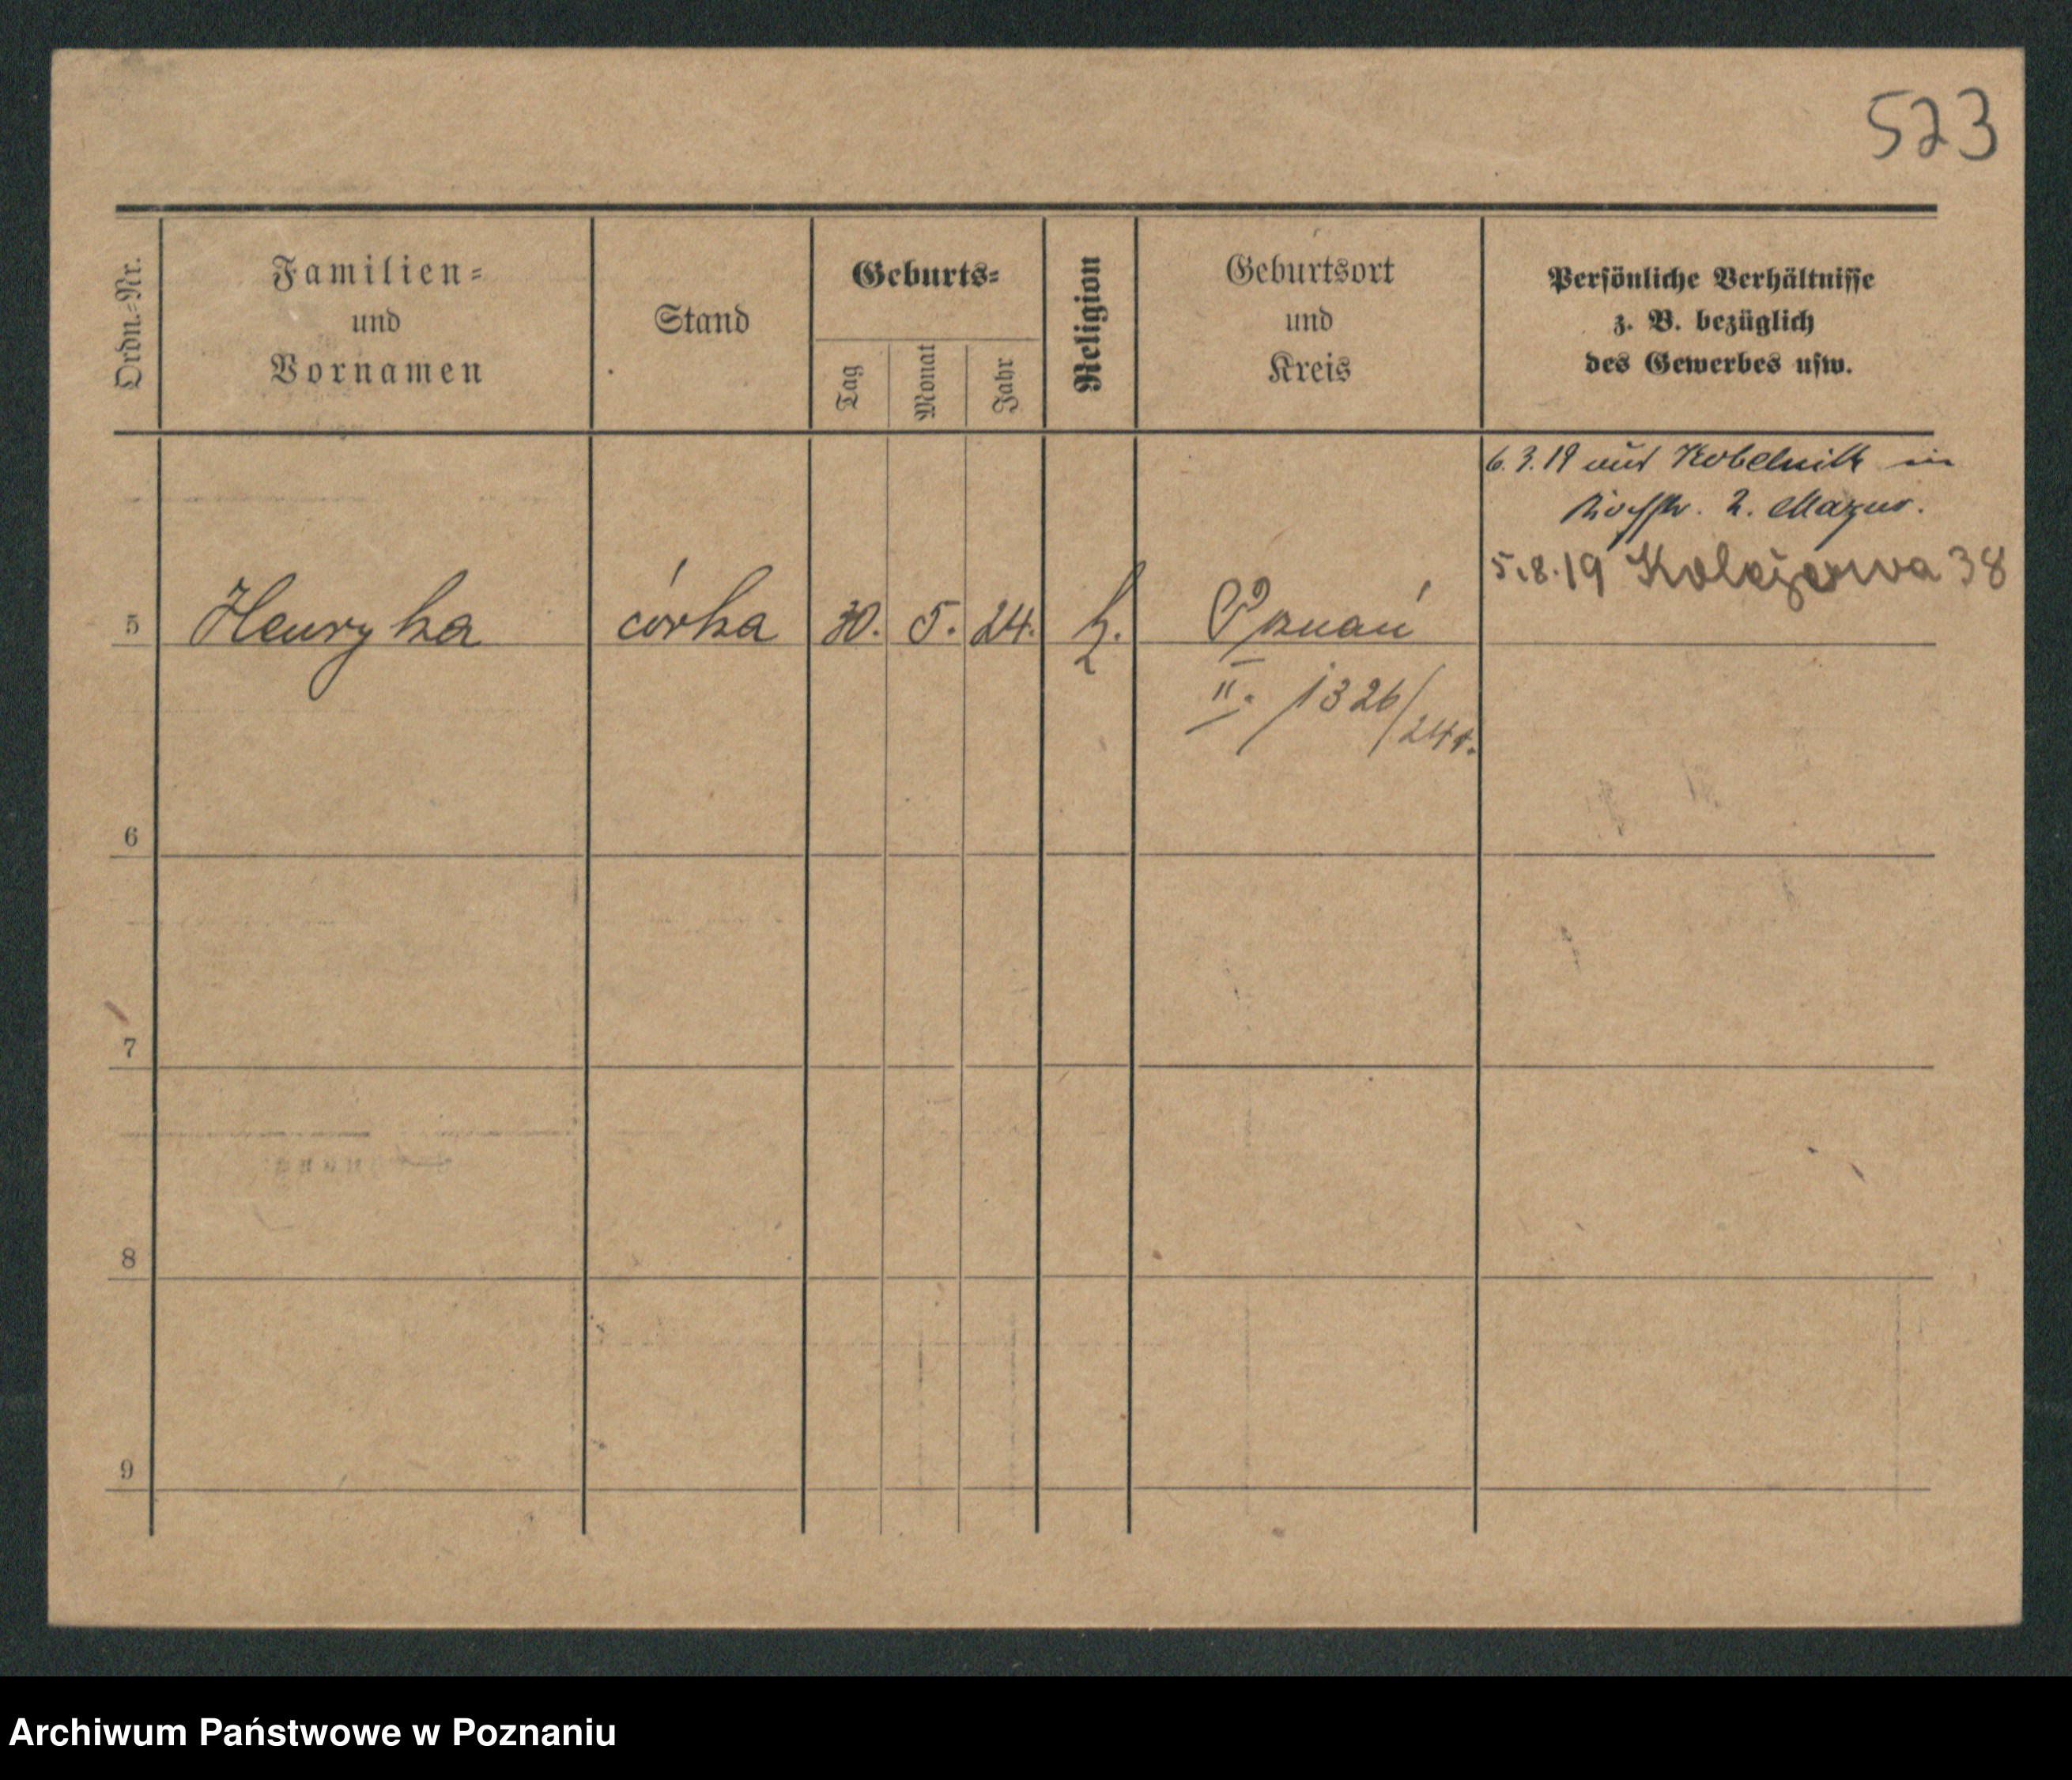 523
Ordn.=Nr.
Familien=
und
Vornamen
Stand
Geburts=
Tag
Monat
Jahr
Religion
Geburtsort
und
Kreis
Persönliche Verhältnisse
z. B. bezüglich
des Gewerbes usw.
6.3.19 aus Kobelnitz in
2. Mazur.
5.8.19 Kolejowa 38
5 Henryka córka 30. 5. 24. k. Poznań
II. /1326/24r.
6
7
8
9
Archiwum Państwowe w Poznaniu